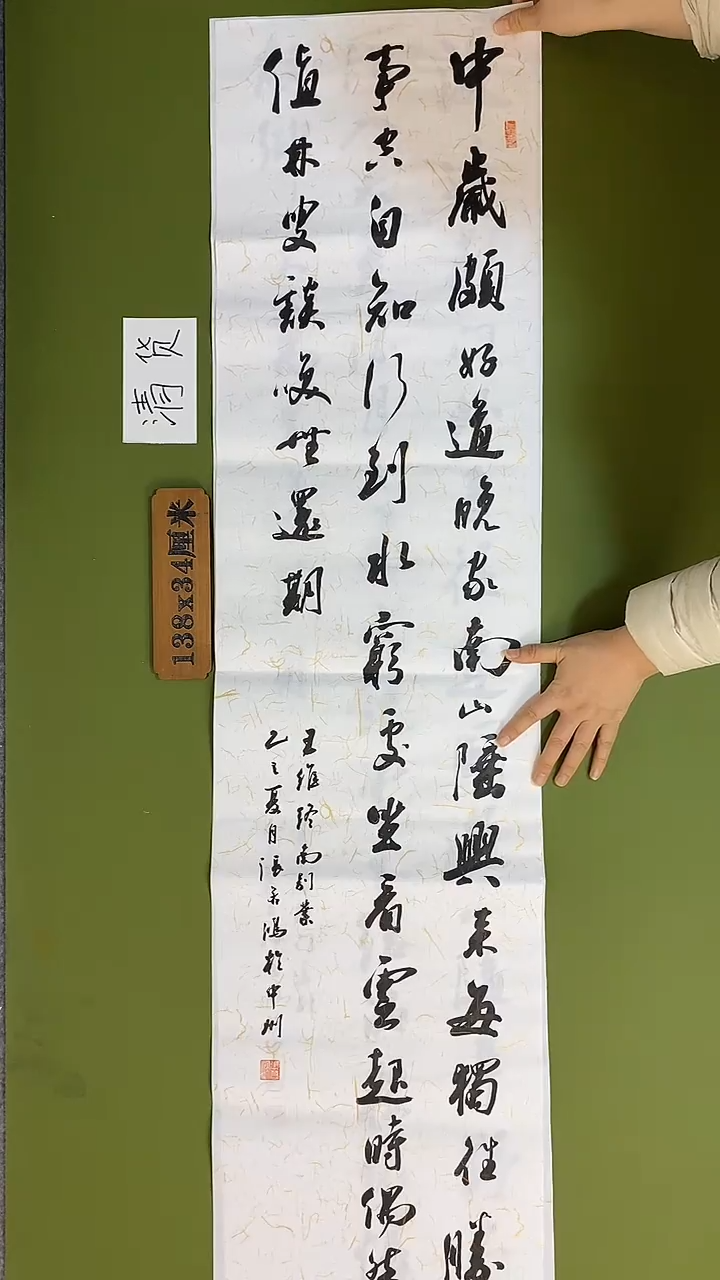 中歲頗好道晚家南山陲興来每獨往勝
事空自知行到水窮處坐看雲起時偶然
值林叟談咲無還期
王維終南别業
乙巳夏月張鴻於中州
清货
138x34厘米